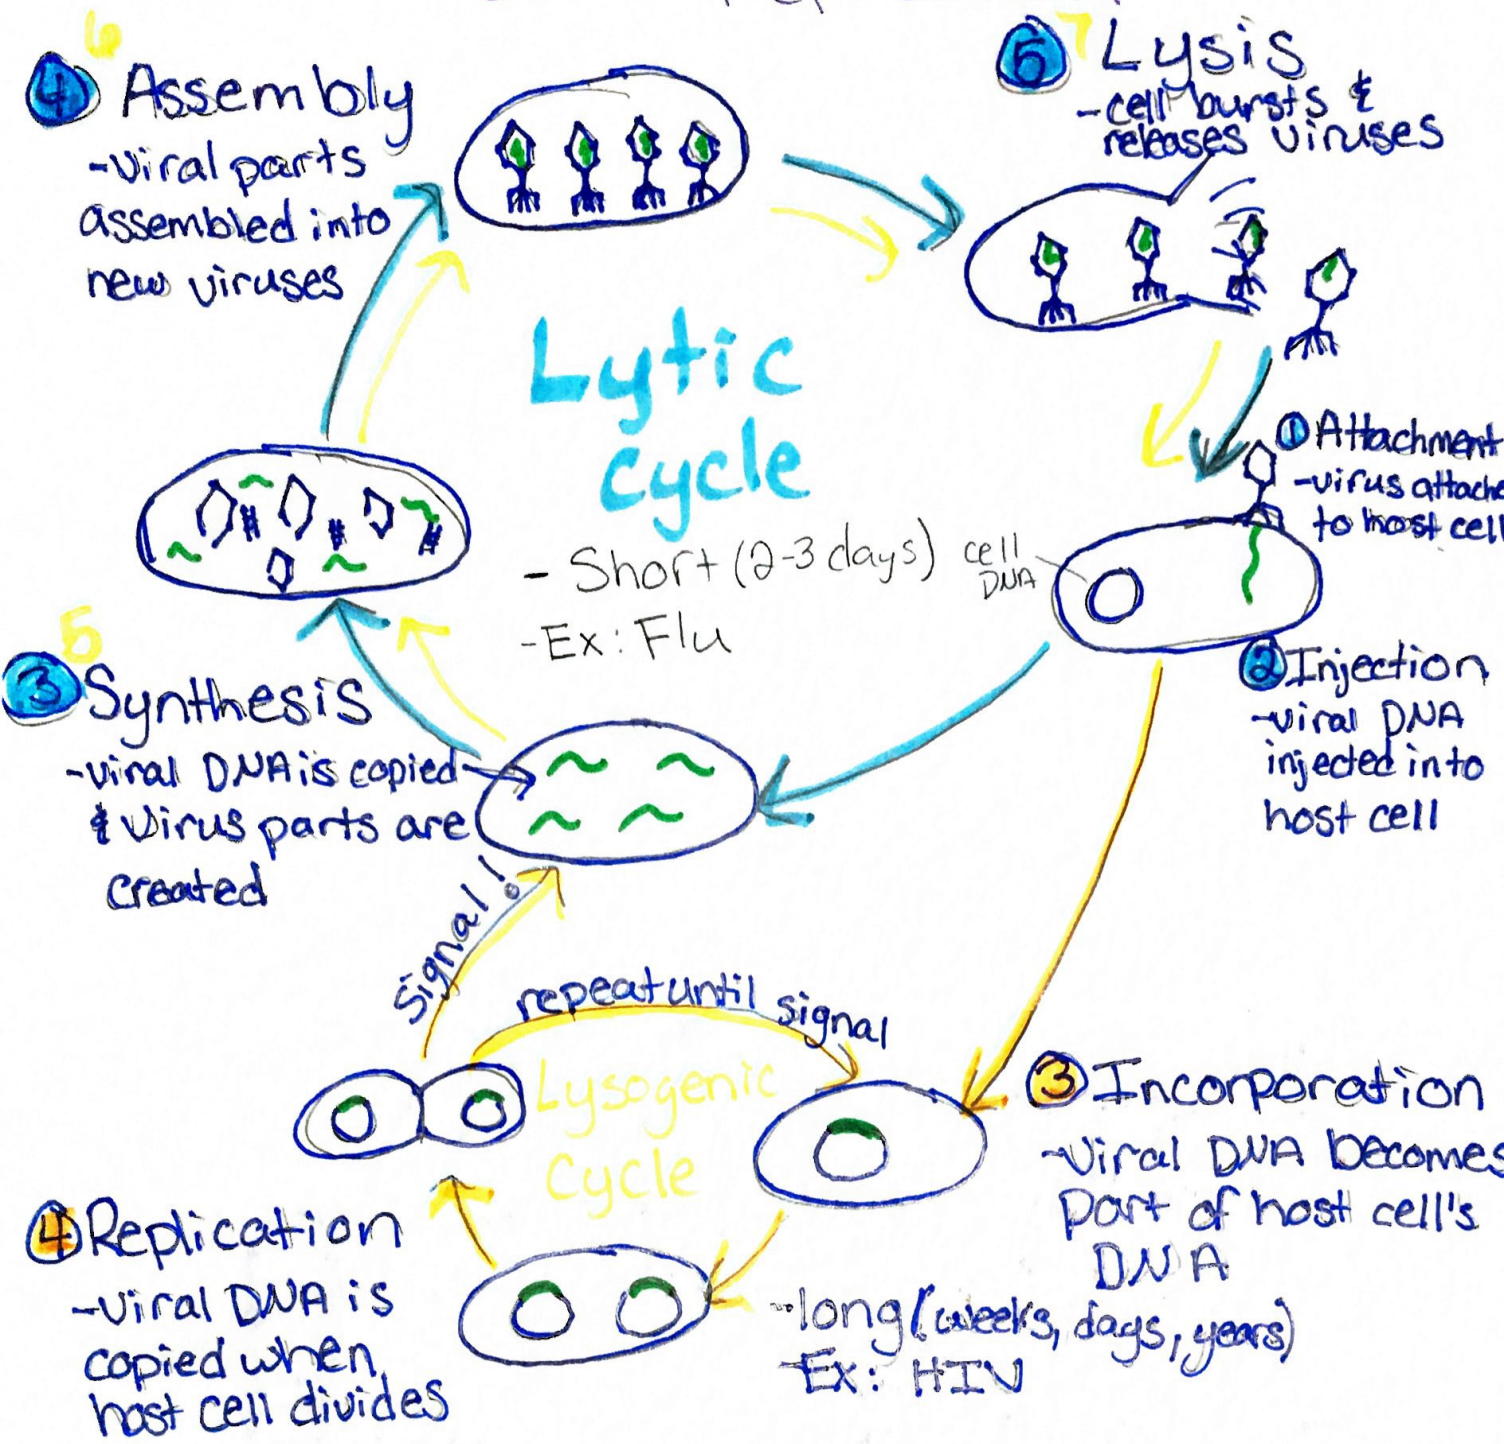 6
4 Assembly
-viral parts
assembled into
new viruses
5 7 Lysis
-cell bursts &
releases viruses
Lytic
cycle
- Short (2-3 days)
-Ex: Flu
cell
DNA
1 Attachment
-virus attache
to host cell
2 Injection
-viral DNA
injected into
host cell
5
3 Synthesis
-viral DNA is copied
& virus parts are
created
Signal!
repeat until signal
Lysogenic
Cycle
3 Incorporation
-Viral DNA becomes
part of host cell's
DNA
-long (weeks, days, years)
-Ex: HIV
4 Replication
-Viral DNA is
copied when
host cell divides